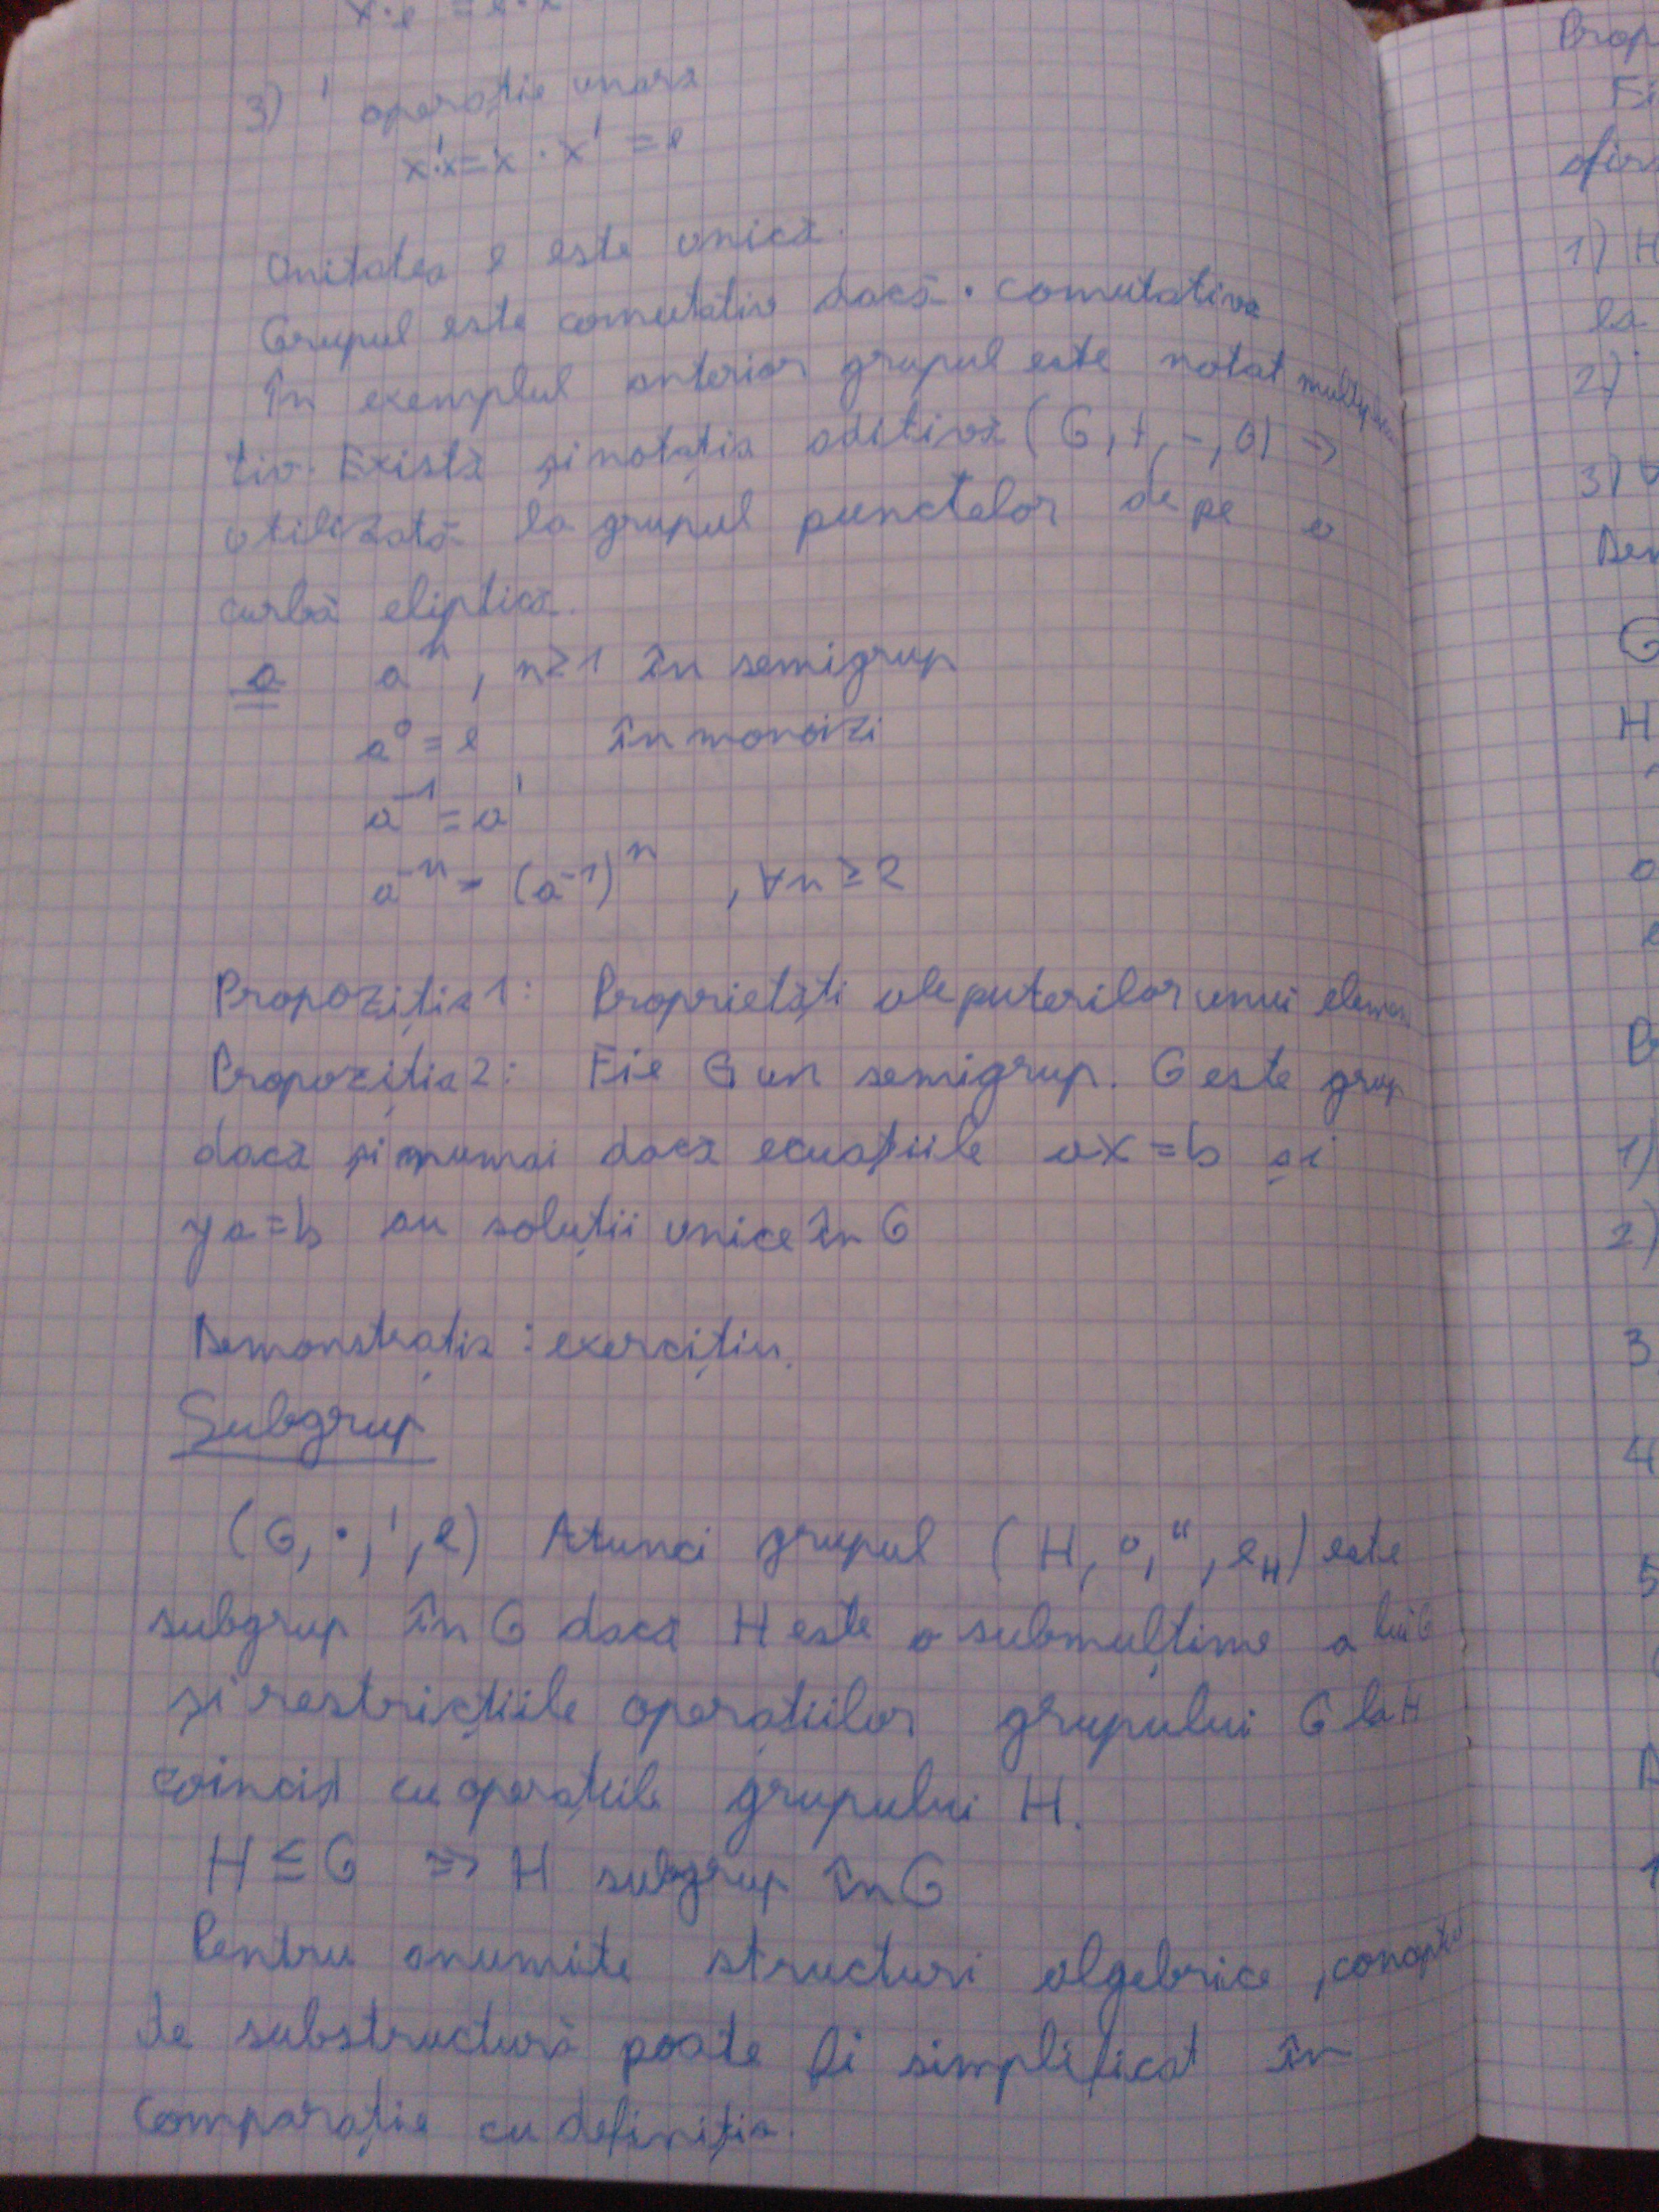 x·e = e·x
3) ' operație unară
x'·x=x·x' = e
Unitatea e este unică.
Grupul este comutativ dacă · comutativă
În exemplul anterior grupul este notat multiplica
tiv. Există și notația aditivă (G,+,-,0) →
utilizată la grupul punctelor de pe o
curbă eliptică.
a a^n , n≥1 în semigrup
a^0 = e în monoizi
a^-1 = a'
a^-n = (a^-1)^n , ∀n≥2
Propoziția 1: Proprietăți ale puterilor unui element
Propoziția 2: Fie G un semigrup. G este grup
dacă și numai dacă ecuațiile ax=b și
ya=b au soluții unice în G
Demonstrația : exercițiu.
Subgrup
(G, ·, ', e) Atunci grupul (H, °, ", e_H) este
subgrup în G dacă H este o submulțime a lui G
și restricțiile operațiilor grupului G la H
coincid cu operațiile grupului H.
H ≤ G ⇒ H subgrup în G
Pentru anumite structuri algebrice, conceptul
de substructură poate fi simplificat în
comparație cu definiția.
Prop
Fi
1) H
la
2)
3) ∀
Dem
G
H
1)
2)
3
4
5
1